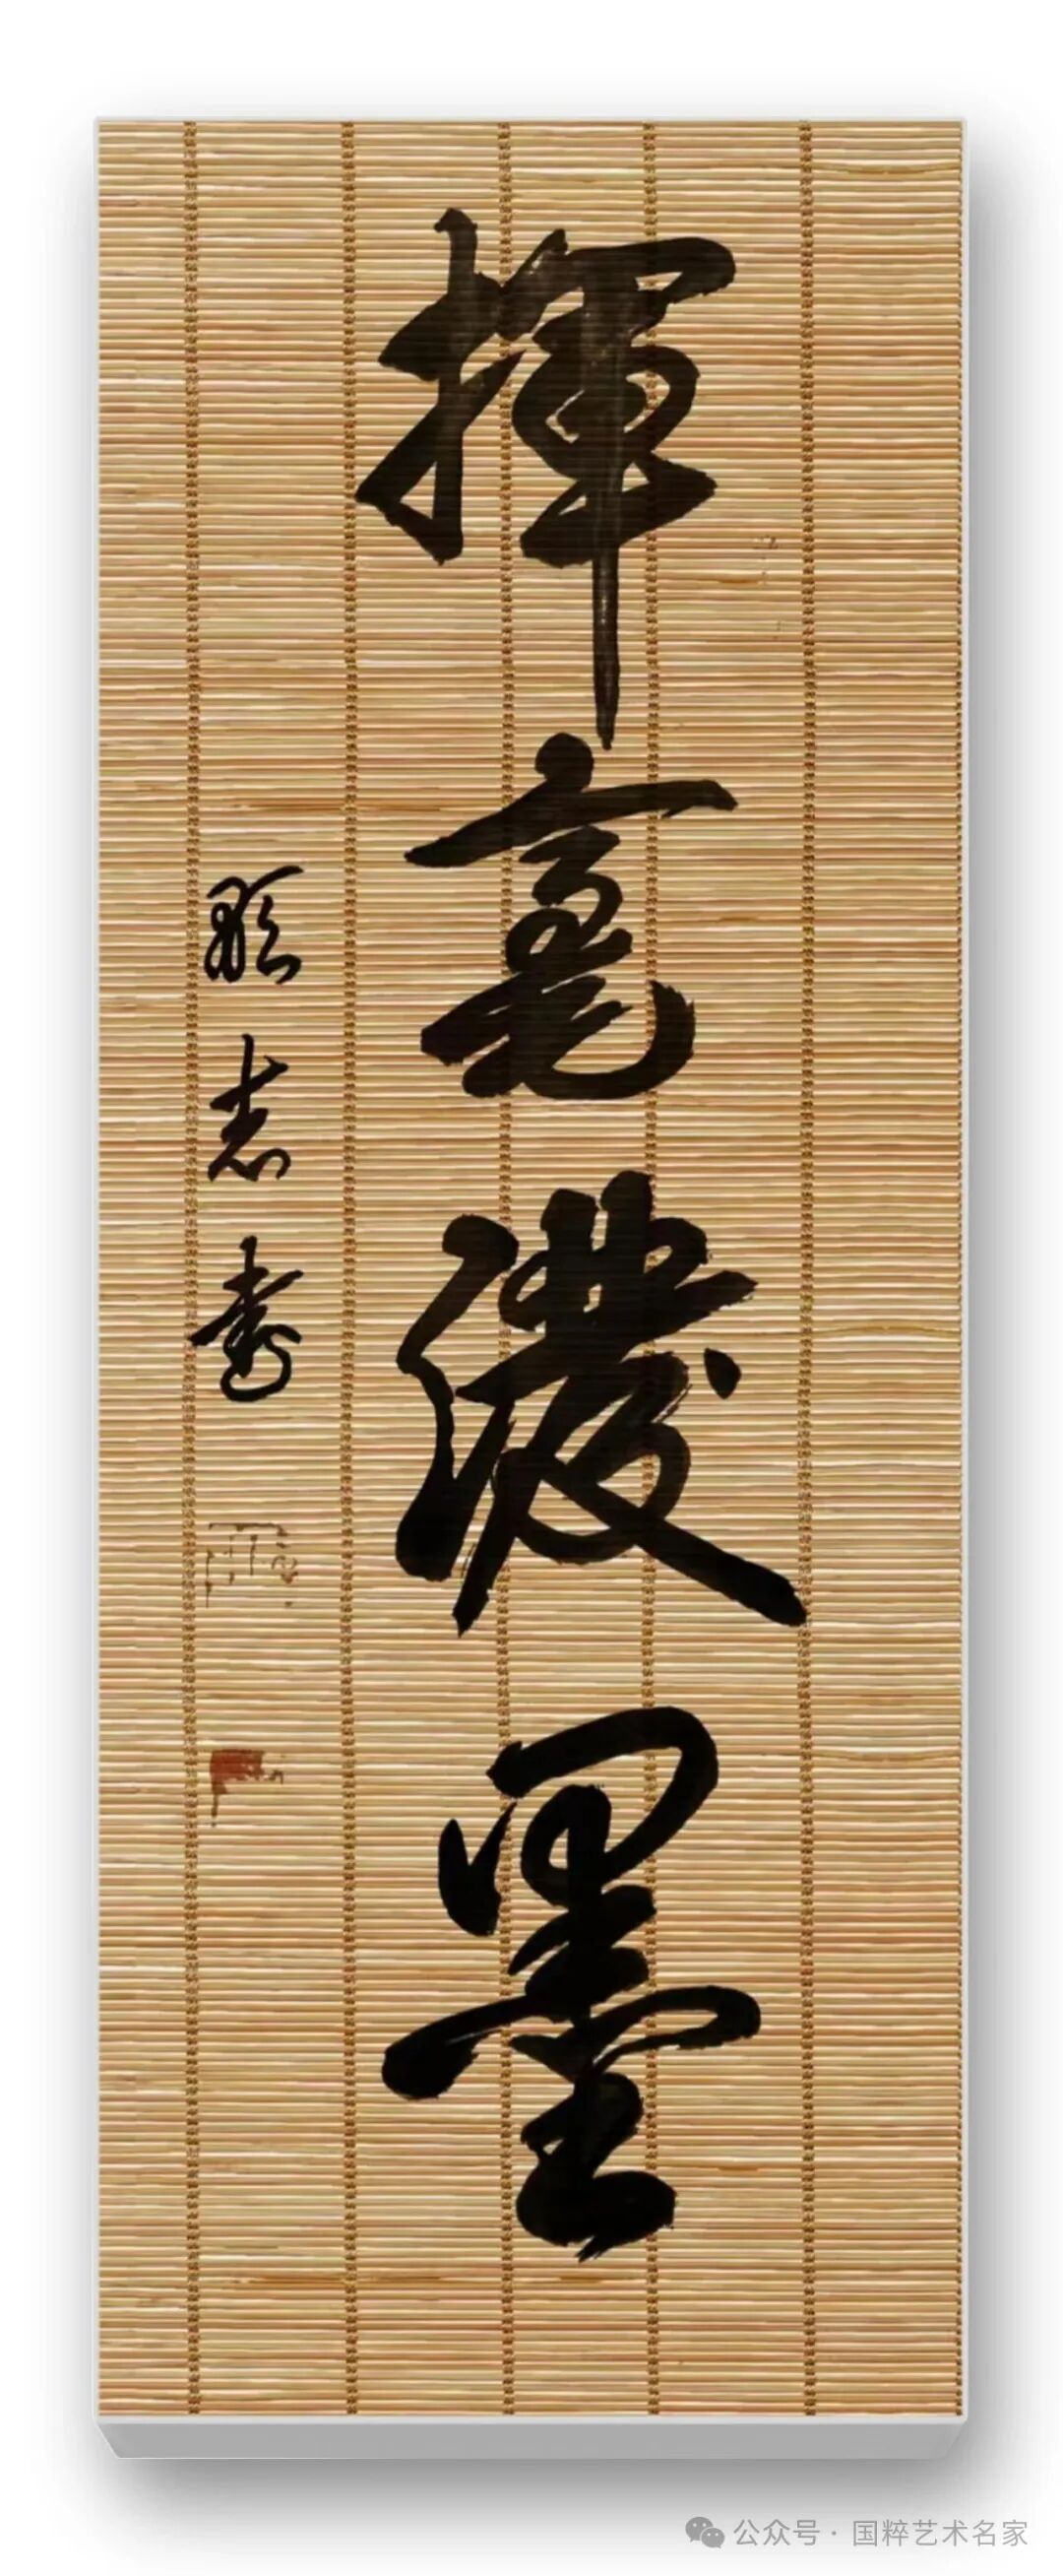 揮毫潑墨
志書
公众号 · 国粹艺术名家